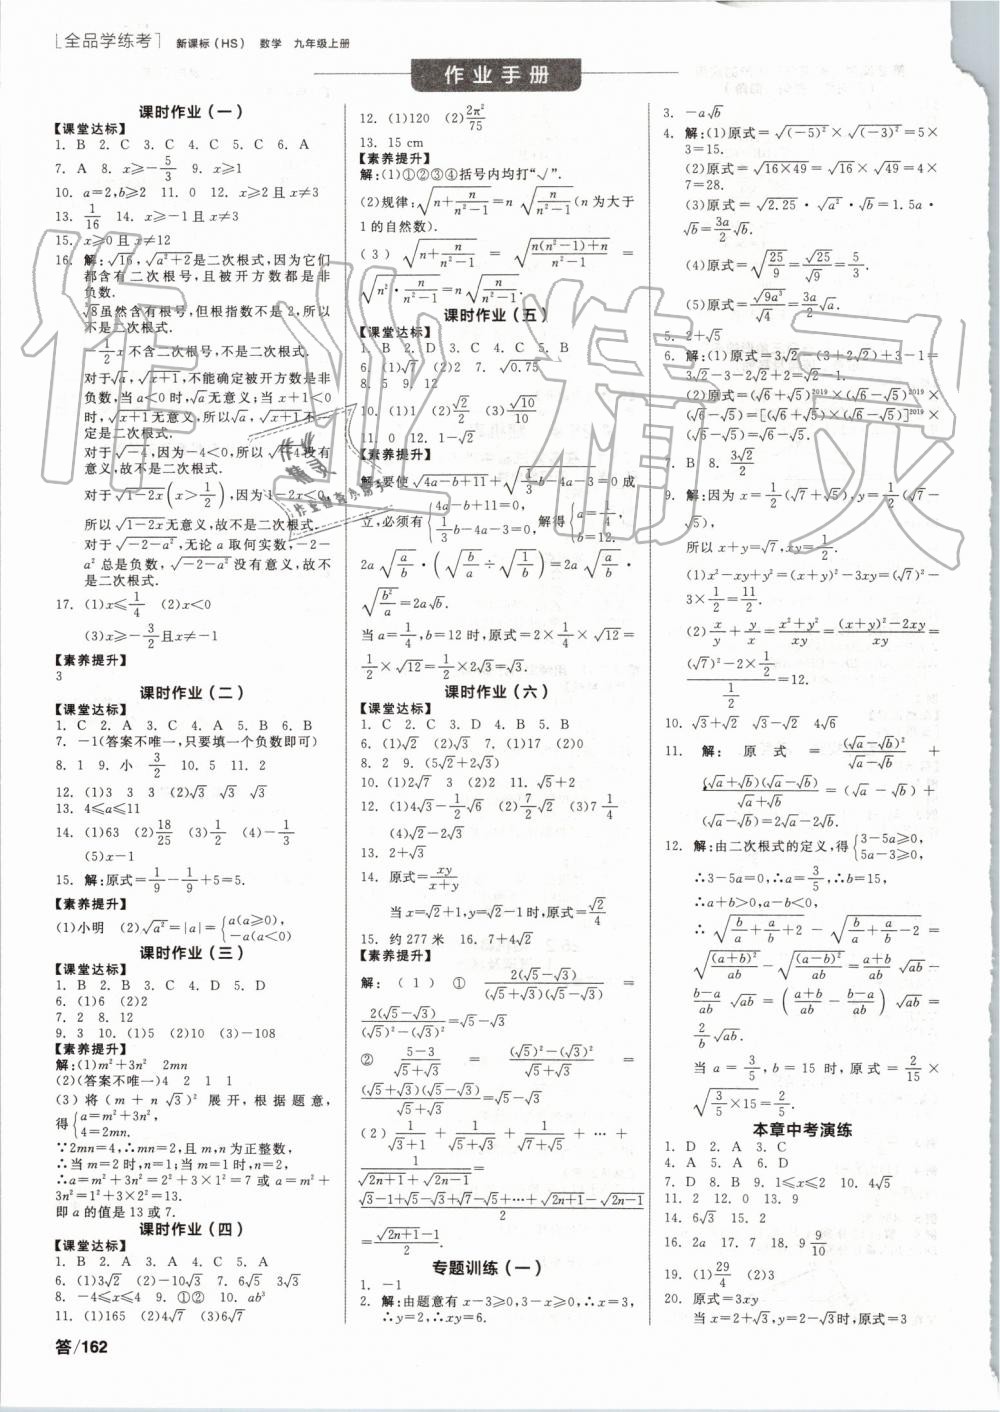 [全品学练考] 新课标(HS) 数学 九年级上册
作业手册
课时作业(一)
【课堂达标】
1. B 2. C 3. C 4. C 5. C 6. A
7. A 8. x≥-5/3 9. x≥1
10. a=2,b≥2 11. 0 12. x≥2且x≠3
13. 1/16 14. x≥-1且x≠3
15. x≥0且x≠12
16. 解:√16,√(a²+2)是二次根式,因为它们
都含有二次根号,且被开方数都是非
负数.
∛8虽然含有根号,但根指数不是2,所以
不是二次根式.
-1/2 x不含二次根号,不是二次根式.
对于√a,√(x+1),不能确定被开方数是非
负数,当a<0时,√a无意义;当x+1<0
时,√(x+1)无意义,所以√a,√(x+1)不一
定是二次根式.
对于√-4,因为-4<0,所以√-4没有
意义,故不是二次根式.
对于√(1-2x)(x>1/2),因为1-2x<0,
所以√(1-2x)无意义,故不是二次根式.
对于√(-2-a²),无论a取何实数,-2-
a²总是负数,√(-2-a²)没有意义,故不
是二次根式.
17. (1)x≤1/4 (2)x<0
(3)x≥-3/2且x≠-1
【素养提升】
3
课时作业(二)
【课堂达标】
1. C 2. A 3. C 4. A 5. B 6. B
7. -1(答案不唯一,只要填一个负数即可)
8. 1 9. 小 3/2 10. 5 11. 2
12. (1)3 3 3 (2)√3 √3 √3
13. 4≤a≤11
14. (1)63 (2)18/25 (3)1/2 (4)-1/3
(5)x-1
15. 解:原式=1/9-1/9+5=5.
【素养提升】
(1)小明 (2)√a²=|a|={a(a≥0), -a(a<0)
课时作业(三)
【课堂达标】
1. B 2. B 3. C 4. D 5. D
6. (1)6 (2)2
7. 2 8. 12
9. 3 10. (1)5 (2)10 (3)-108
【素养提升】
解:(1)m²+3n² 2mn
(2)(答案不唯一)4 2 1 1
(3)将(m+n√3)²展开,根据题意,
得{a=m²+3n², 4=2mn.
∵2mn=4,∴mn=2,且m,n为正整数,
∴当m=2时,n=1;当m=1时,n=2,
∴a=m²+3n²=2²+3×1²=7或a=m²+
3n²=1²+3×2²=13.
即a的值是13或7.
课时作业(四)
【课堂达标】
1. B 2. A 3. A 4. C 5. A
6. (1)3√2 (2)-10√3 7. 6√5 3√3
8. -4≤x≤4 9. ①② 10. ab³
11. (1)165 (2)4√7 (3)6√7
答/162
12. (1)120 (2)2π²/75
13. 15 cm
【素养提升】
解:(1)①②③④括号内均打“√”.
(2)规律:√(n+n/(n²-1))=n√(n/(n²-1))(n为大于
1的自然数).
(3)√(n+n/(n²-1))=√((n(n²-1)+n)/(n²-1))=
√(n²·n/(n²-1))=n√(n/(n²-1)).
课时作业(五)
【课堂达标】
1. B 2. D 3. C 4. C 5. B
6. (1)√7 (2)2 7. √0.75
8. 5 9. 12
10. (1)1 (2)√2/2 (3)√10/10
11. 0 12. 1-√2
【素养提升】
解:要使√(4a-b+11)+√(1/3 b-4a-3)=0成
立,必须有{4a-b+11=0, 1/3 b-4a-3=0, 解得{a=1/4, b=12.
2a√(a/b)·(√(a/b)÷√(1/b))=2a√(a/b)·
√(b²/a)=2a√b.
当a=1/4,b=12时,原式=2×1/4×√12=
1/2×√12=1/2×2√3=√3.
课时作业(六)
【课堂达标】
1. C 2. C 3. D 4. B 5. B
6. (1)√2 (2)√3 7. (1)17 (2)0
8. 2 9. (5√2+2√3)
10. (1)2√7 3 (2)2 11. √5+2
12. (1)4√3-1/2√6 (2)7/2√2 (3)7 1/4
(4)√2-2√3
13. 2+√3
14. 原式=xy/(x+y)
当x=√2+1,y=√2-1时,原式=√2/4
15. 约277米 16. 7+4√2
【素养提升】
解:(1)①2(√5-√3)/((√5+√3)(√5-√3))=
2(√5-√3)/((√5)²-(√3)²)=√5-√3
②(5-3)/(√5+√3)=((√5)²-(√3)²)/(√5+√3)=
(√5+√3)(√5-√3)/(√5+√3)=√5-√3
(2)1/(√3+1)+1/(√5+√3)+1/(√7+√5)+…+
1/(√(2n+1)+√(2n-1))=
(√3-1+√5-√3+√7-√5+…+√(2n+1)-√(2n-1))/2
=(√(2n+1)-1)/2.
专题训练(一)
1. -1
2. 解:由题意有x-3≥0,3-x≥0,∴x=3,
∴y=2,∴xy=6.
3. -a√b
4. 解:(1)原式=√(-5)²×√(-3)²=5×
3=15.
(2)原式=√(16×49)=√16×√49=4×
7=28.
(3)原式=√2.25·√a²·√b=1.5a·
√b=3a/2 √b.
(4)原式=√(25/9)=√25/√9=5/3.
(5)原式=√9a³/√4=3a/2 √a.
5. 2+√5
6. 解:(1)原式=3√2-(3+2√2)+3-1=
3√2-3-2√2+2=√2-1.
(2)原式=(√6+√5)²⁰¹⁹×(√6-√5)²⁰¹⁹×
(√6-√5)=[(√6+√5)×(√6-√5)]²⁰¹⁹×
(√6-√5)=√6-√5.
7. B 8. 3√2/2
9. 解:因为x=1/2(√7+√5),y=1/2(√7-
√5),
所以x+y=√7,xy=1/2.
(1)x²-xy+y²=(x+y)²-3xy=(√7)²-
3×1/2=11/2.
(2)x/y+y/x=(x²+y²)/xy=((x+y)²-2xy)/xy=
((√7)²-2×1/2)/(1/2)=12.
10. √3+√2 √3-√2 4√6
11. 解:原式=(√a-√b)²/(√a-√b)+
(√a+√b)(√a-√b)/(√a+√b)=(√a-√b)+
(√a-√b)=2√a-2√b.
12. 解:由二次根式的定义,得{3-5a≥0, 5a-3≥0,
∴3-5a=0,∴a=3/5,∴b=15,
∴a+b>0,a-b<0,
∴√(b/a+a/b+2)-√(b/a+a/b-2)=
√((a+b)²/ab)-√((a-b)²/ab)=(a+b)/ab √ab-
(b-a)/ab √ab=((a+b)/ab-(b-a)/ab)√ab=
2/b √ab.
当a=3/5,b=15时,原式=2/15×
√(3/5×15)=2/5.
本章中考演练
1. D 2. A 3. C
4. A 5. A 6. D
7. D 8. B 9. 1≤x≤2 10. 4√5
11. 2 12. 0 13. 9
14. 6√3 15. 2
16. 2a 17. 7 18. 9 9/10
19. (1)29/4 (2)3
20. 原式=3xy
当x=2+√3,y=2-√3时,原式=3
作业精灵
作业
精灵